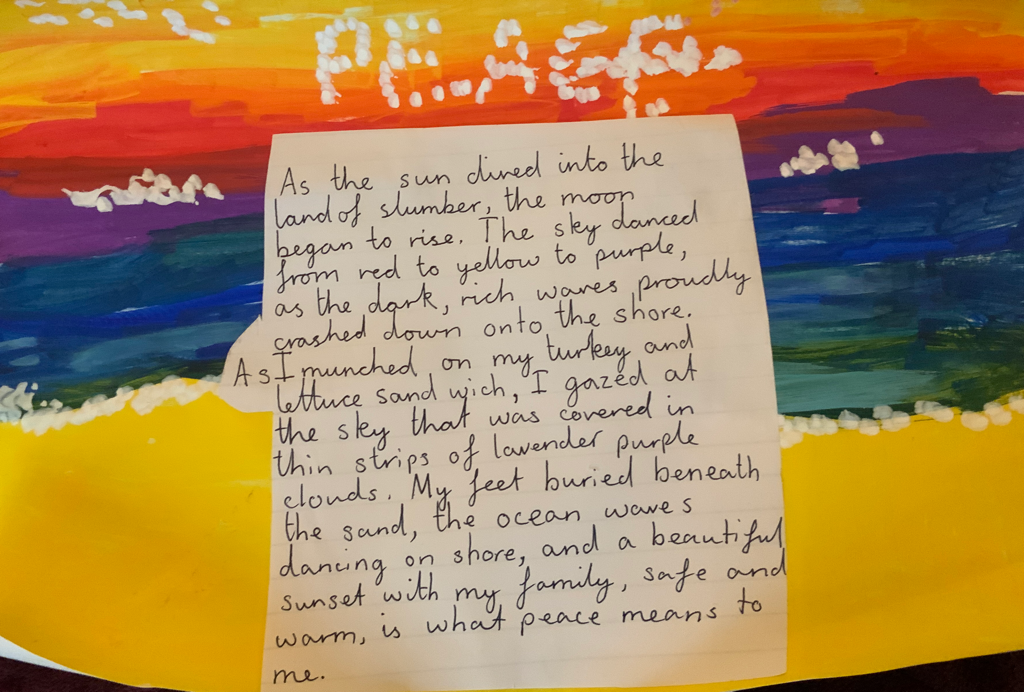 PEACE
As the sun dived into the
land of slumber, the moon
began to rise. The sky danced
from red to yellow to purple,
as the dark, rich waves proudly
crashed down onto the shore.
As I munched on my turkey and
lettuce sandwich, I gazed at
the sky that was covered in
thin strips of lavender purple
clouds. My feet buried beneath
the sand, the ocean waves
dancing on shore, and a beautiful
sunset with my family, safe and
warm, is what peace means to
me.